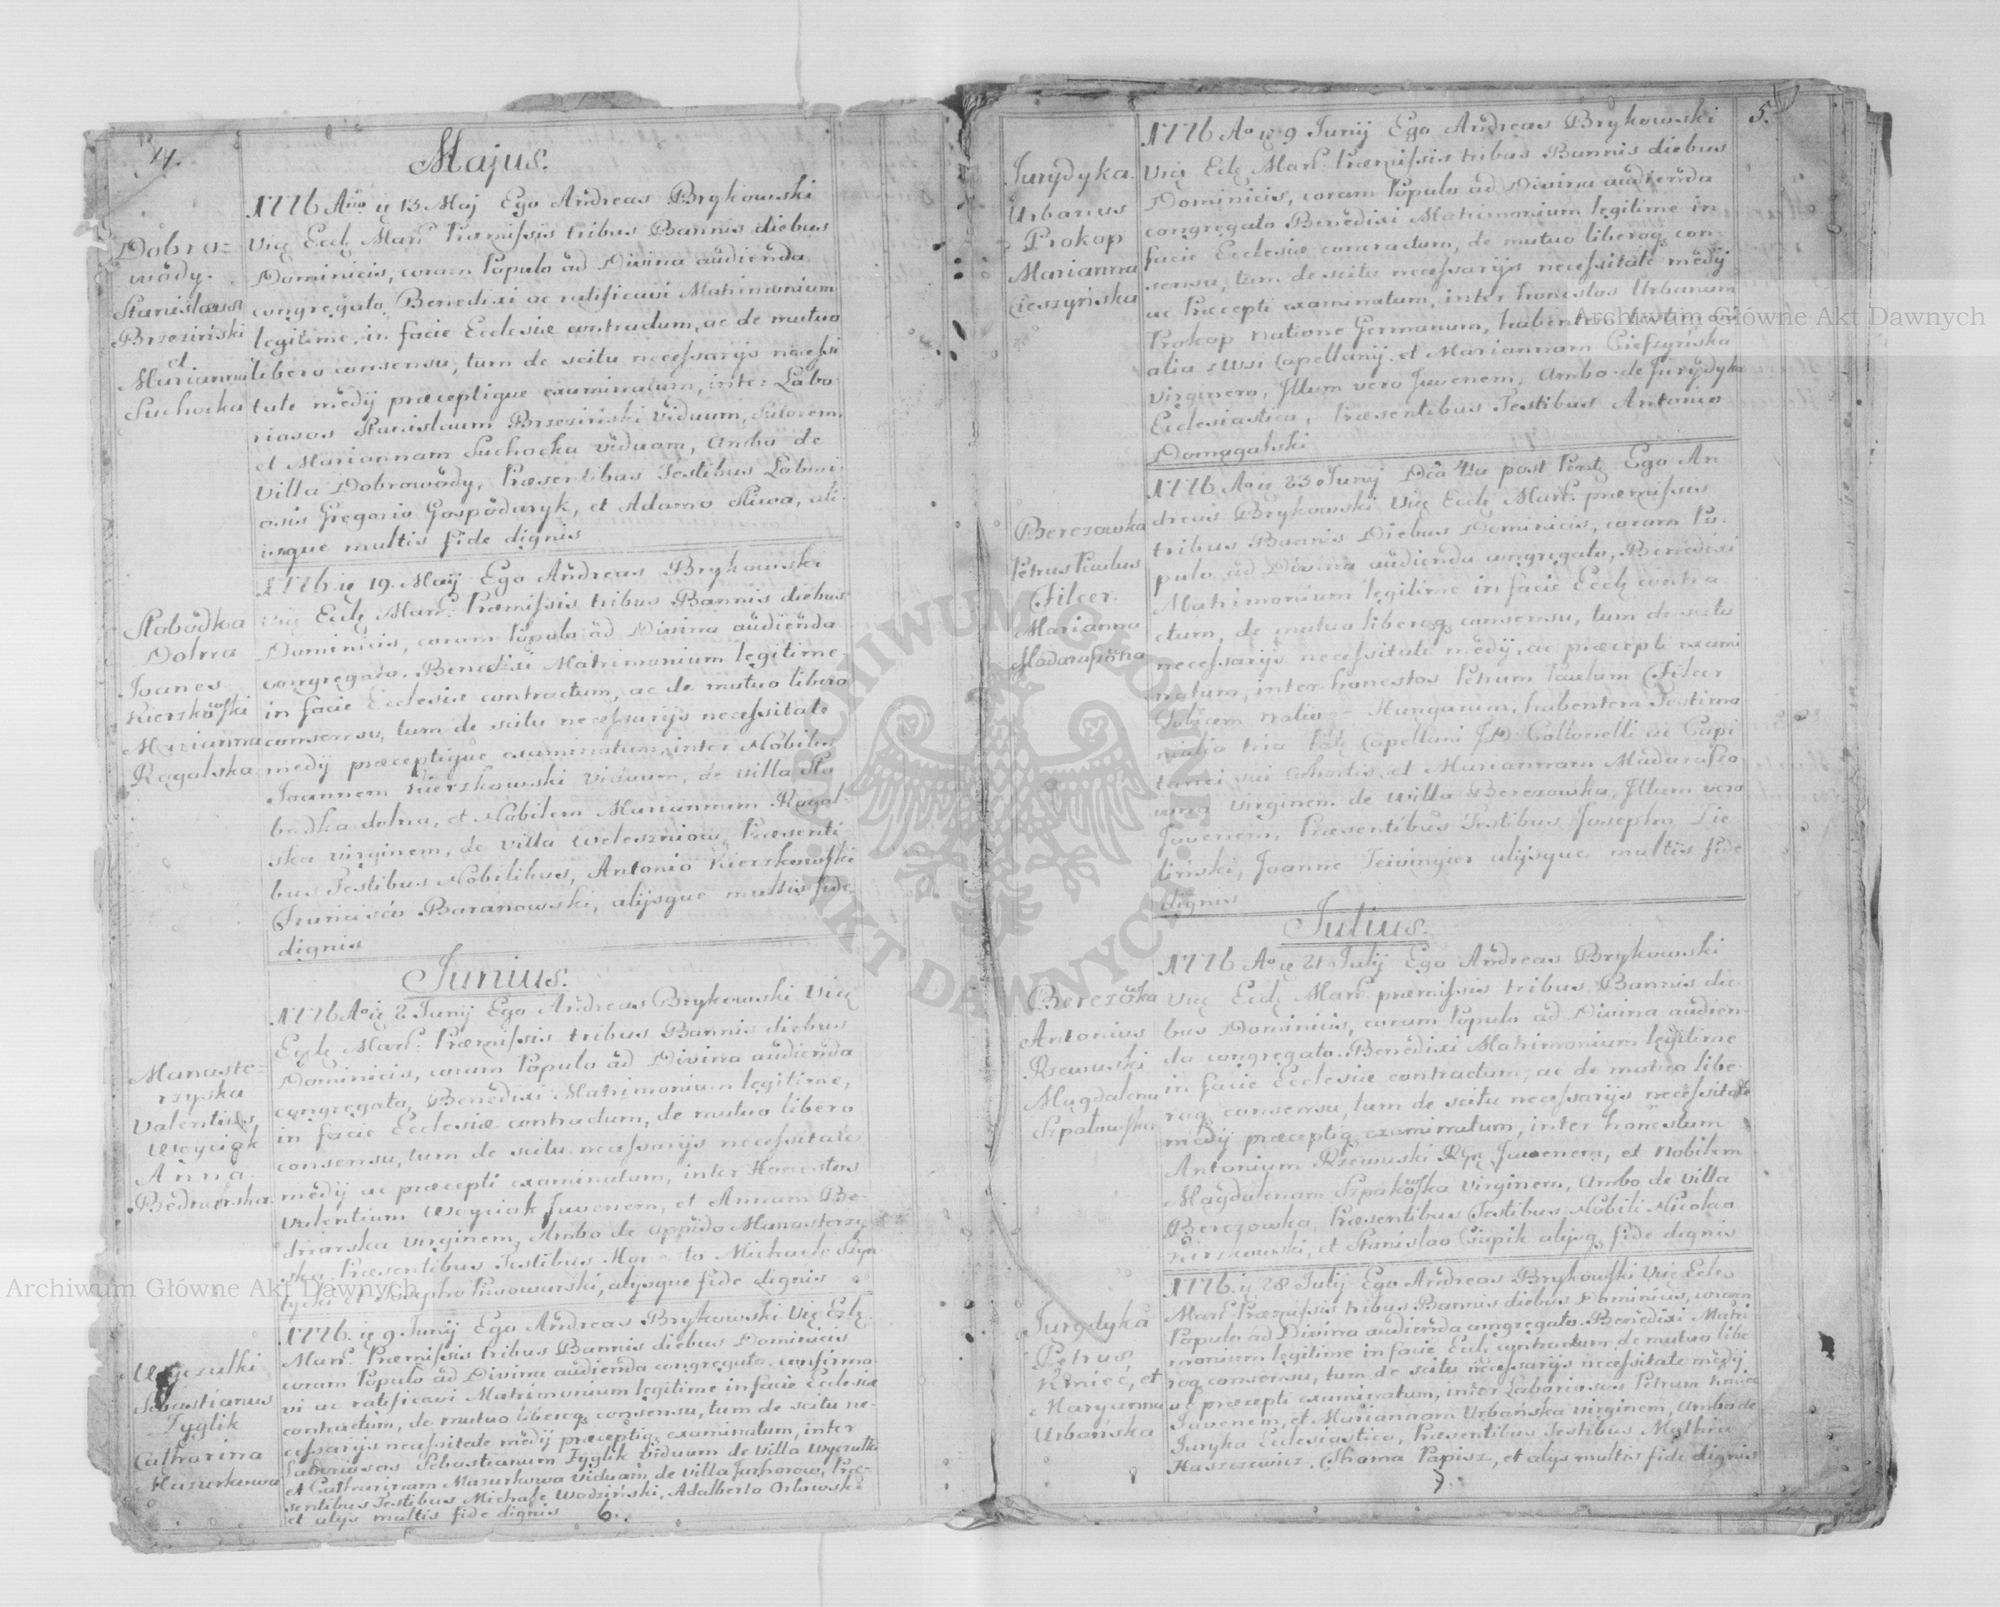 4.
Majus.
Dobro=
wody.
Stanislaus
Brzeziński
et
Marianna
Suchocka
1776 Año ię 13 Maj Ego Andreas Brykowski
Vię Eccłę Manſ. Præmiſsis tribus Bannis diebus
Dominicis, coram Populo ad Divina audienda
congregato, Benedixi ac ratificavi Matrimonium
legitime in facie Ecclesiæ contractum, ac de mutuo
libero consensu, tum de scitu neceſsarijs neceſsi
tate medij præceptique examinatum, inter Labo
riosos Stanislaum Brzeziński Viduum, Sutorem
et Mariannam Suchocka viduam, Ambo de
Villa Dobrowody, Præsentibus Testibus Labori
osis Gregorio Gospodaryk, et Adamo Sliwa, ali
isque multis fide dignis
Słobodka
Dolna
Joanes
Kierzkowſki
Marianna
Rogalska
1776 ię 19. Maij Ego Andreas Brykowski
Vię Eccłę Manſ. Præmiſsis tribus Bannis diebus
Dominicis, coram Populo ad Divina audienda
congregato. Benedixi Matrimonium legitime
in facie Ecclesiæ contractum, ac de mutuo libero
consensu, tum de scitu neceſsarijs neceſsitate
medij præceptique examinatum, inter Nobiles
Joannem Kierzkowski Viduum, de Villa Sło
bodka dolna, et Nobilem Mariannam Rogal
ska virginem, de Villa Weleszniow, Præsenti
bus Testibus Nobilibus, Antonio Kierzkowſki
Francisco Baranowski, alijsque multis fide
dignis
Junius.
Manaste=
rzyska
Valentius
Woyciak
Anna
Bednarska
1776 Ao ię 2 Junij Ego Andreas Brykowski Vię
Ecçłę Manſ. Præmiſsis tribus Bannis diebus
Dominicis, coram Populo ad Divina audienda
congregato, Benedixi Matrimonium legitime,
in facie Ecclesiæ contractum, de mutuo libero
consensu, tum de scitu neceſsarijs neceſsitate
medij ac præcepti examinatum, inter Honestos
Valentium Woyciak Juvenem, et Annam Be-
dnarska virginem, Ambo de oppido Manasterzy
ska Præsentibus Testibus to Michaele Szyn
tycki et Josepho Piwowarski, alijsque fide dignis
Wyczułki
Sebastianus
Fyglik
Catharina
Mazurkowa
1776. ię 9 Junij Ego Andreas Brykowski Vię Ecłę
Manſ. Præmiſsis tribus Bannis diebus Dominicis
coram Populo ad Divina audienda congregato, confirma
vi ac ratificavi Matrimonium legitime in facie Ecclesiæ
contractum, de mutuo liberoq consensu, tum de scitu ne-
ceſsarijs neceſsitate medij præceptiq examinatum, inter
Laboriosos Sebastianum Fyglik Viduum de Villa Wyczułki
et Catharinam Mazurkowa viduam, de villa Juchorow, Præ-
sentibus Testibus Michale Wodziński, Adalberto Orłowski
et alys multis fide dignis 6.
5.
Jurydyka.
Urbanus
Prokop
Marianna
Cieszyńska
1776 Ao ię 9 Junij Ego Andreas Brykowski
Vię Ecłę Manſ. Præmiſsis tribus Bannis diebus
Dominicis, coram Populo ad Divina audienda
congregato Benedixi Matrimonium legitime in
facie Ecclesiæ contractum, de mutuo liberoq con-
sensu, tum de scitu neceſsarijs neceſsitate medij
ac Præcepti examinatum, inter honestos Urbanum
Prokop natione Germanum, habentem testimoni
alia sui Capellanij et Mariannam Cieſzyńska
virginem, Illum vero Juvenem, Ambo de Jurydyka
Ecclesiastica, Præsentibus Testibus Antonio
Domagalski
Berezowka
Petrus Paulus
Filcer
Marianna
Madaraſzona
1776 Ao ię 23 Junij Dca 4ta post Pent Ego An
dreas Brykowski Vię Ecclę Manſ. præmiſsis
tribus Bannis Diebus Dominicis, coram Po-
pulo ad Divina audienda congregato, Benedixi
Matrimonium legitime in facie Eccłę contra-
ctum, de mutuo liberoq consensu, tum de scitu
neceſsarijs neceſsitate medij, ac præcepti exami
natum, inter honestos Petrum Paulum Filcer
natio= Hungarum, habentem Testimo
nialia Capellani J.D. Colloredli ac Capi
tanei sui Cohortis, et Mariannam Madaraſzo
wna virginem de Villa Berezowka, Illum vero
Juvenem, Præsentibus Testibus Josepho Zie
liński, Joanne alijsque multis fide
dignis
Julius.
Berezowka
Antonius
Rzewuski
Magdalena
Szpakowſka
1776 Ao ię 21 Julij Ego Andreas Brykowski
Vię Eccłę Manſ. præmiſsis tribus Bannis die
bus Dominicis, coram Populo ad Divina audien-
da congregato. Benedixi Matrimonium legitime
in facie Ecclesiæ contractum, ac de mutuo libe-
roq consensu, tum de scitu neceſsarijs neceſsitate
medij præceptiq examinatum, inter honestum
Antonium Rzewuski Juvenem, et Nobilem
Magdalenam Szpakowſka virginem, Ambo de Villa
Berezowka, Præsentibus Testibus Nobili Nicolao
Kierzkowski, et Stanislao Czupik alijsq fide dignis
Jurydyka
Petrus
Kmieć, et
Maryanna
Urbańska
1776 ię 28 Julij Ego Andreas Brykowſki Vię Eccles
Manſ. Præmiſsis tribus Bannis diebus Dominicis, coram
Populo ad Divina audienda congregato. Benedixi Matri
monium legitime in facie Eccłę contractum de mutuo libe
roq consensu, tum de scitu neceſsarijs neceſsitate medij
ac præcepti examinatum, inter Laboriosos Petrum Kmiec
Juvenem, et Mariannam Urbańska virginem, Ambo de
Juryka Ecclesiastica, Præsentibus Testibus Mathia
Haszczewicz, Thoma Papisz, et alys multis fide dignis
7.
Archiwum Główne Akt Dawnych
Archiwum Główne Akt Dawnych
ARCHIWUM GŁÓWNE AKT DAWNYCH